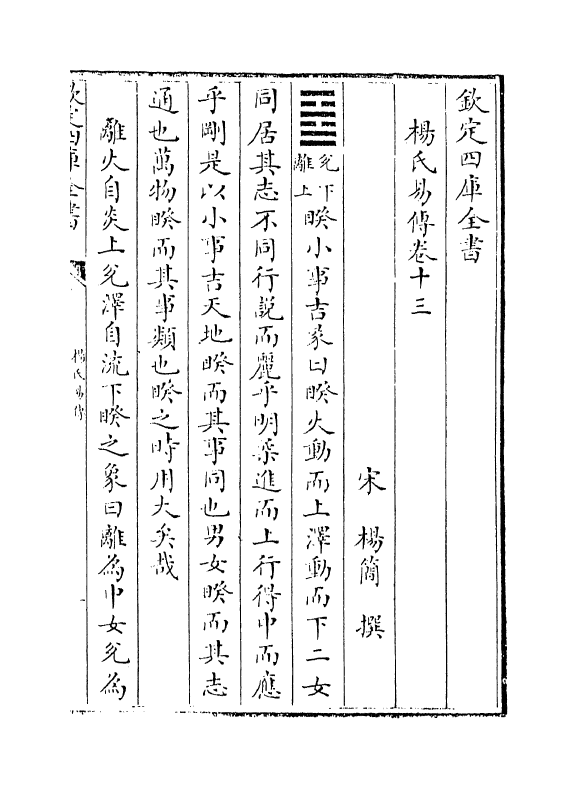 欽定四庫全書
楊氏易傳卷十三
宋 楊簡 撰
兌下
離上
睽小事吉彖曰睽火動而上澤動而下二女
同居其志不同行說而麗乎明柔進而上行得中而應
乎剛是以小事吉天地睽而其事同也男女睽而其志
通也萬物睽而其事類也睽之時用大矣哉
離火自炎上兌澤自流下睽之象曰離為中女兌為
欽定四庫全書
楊氏易傳